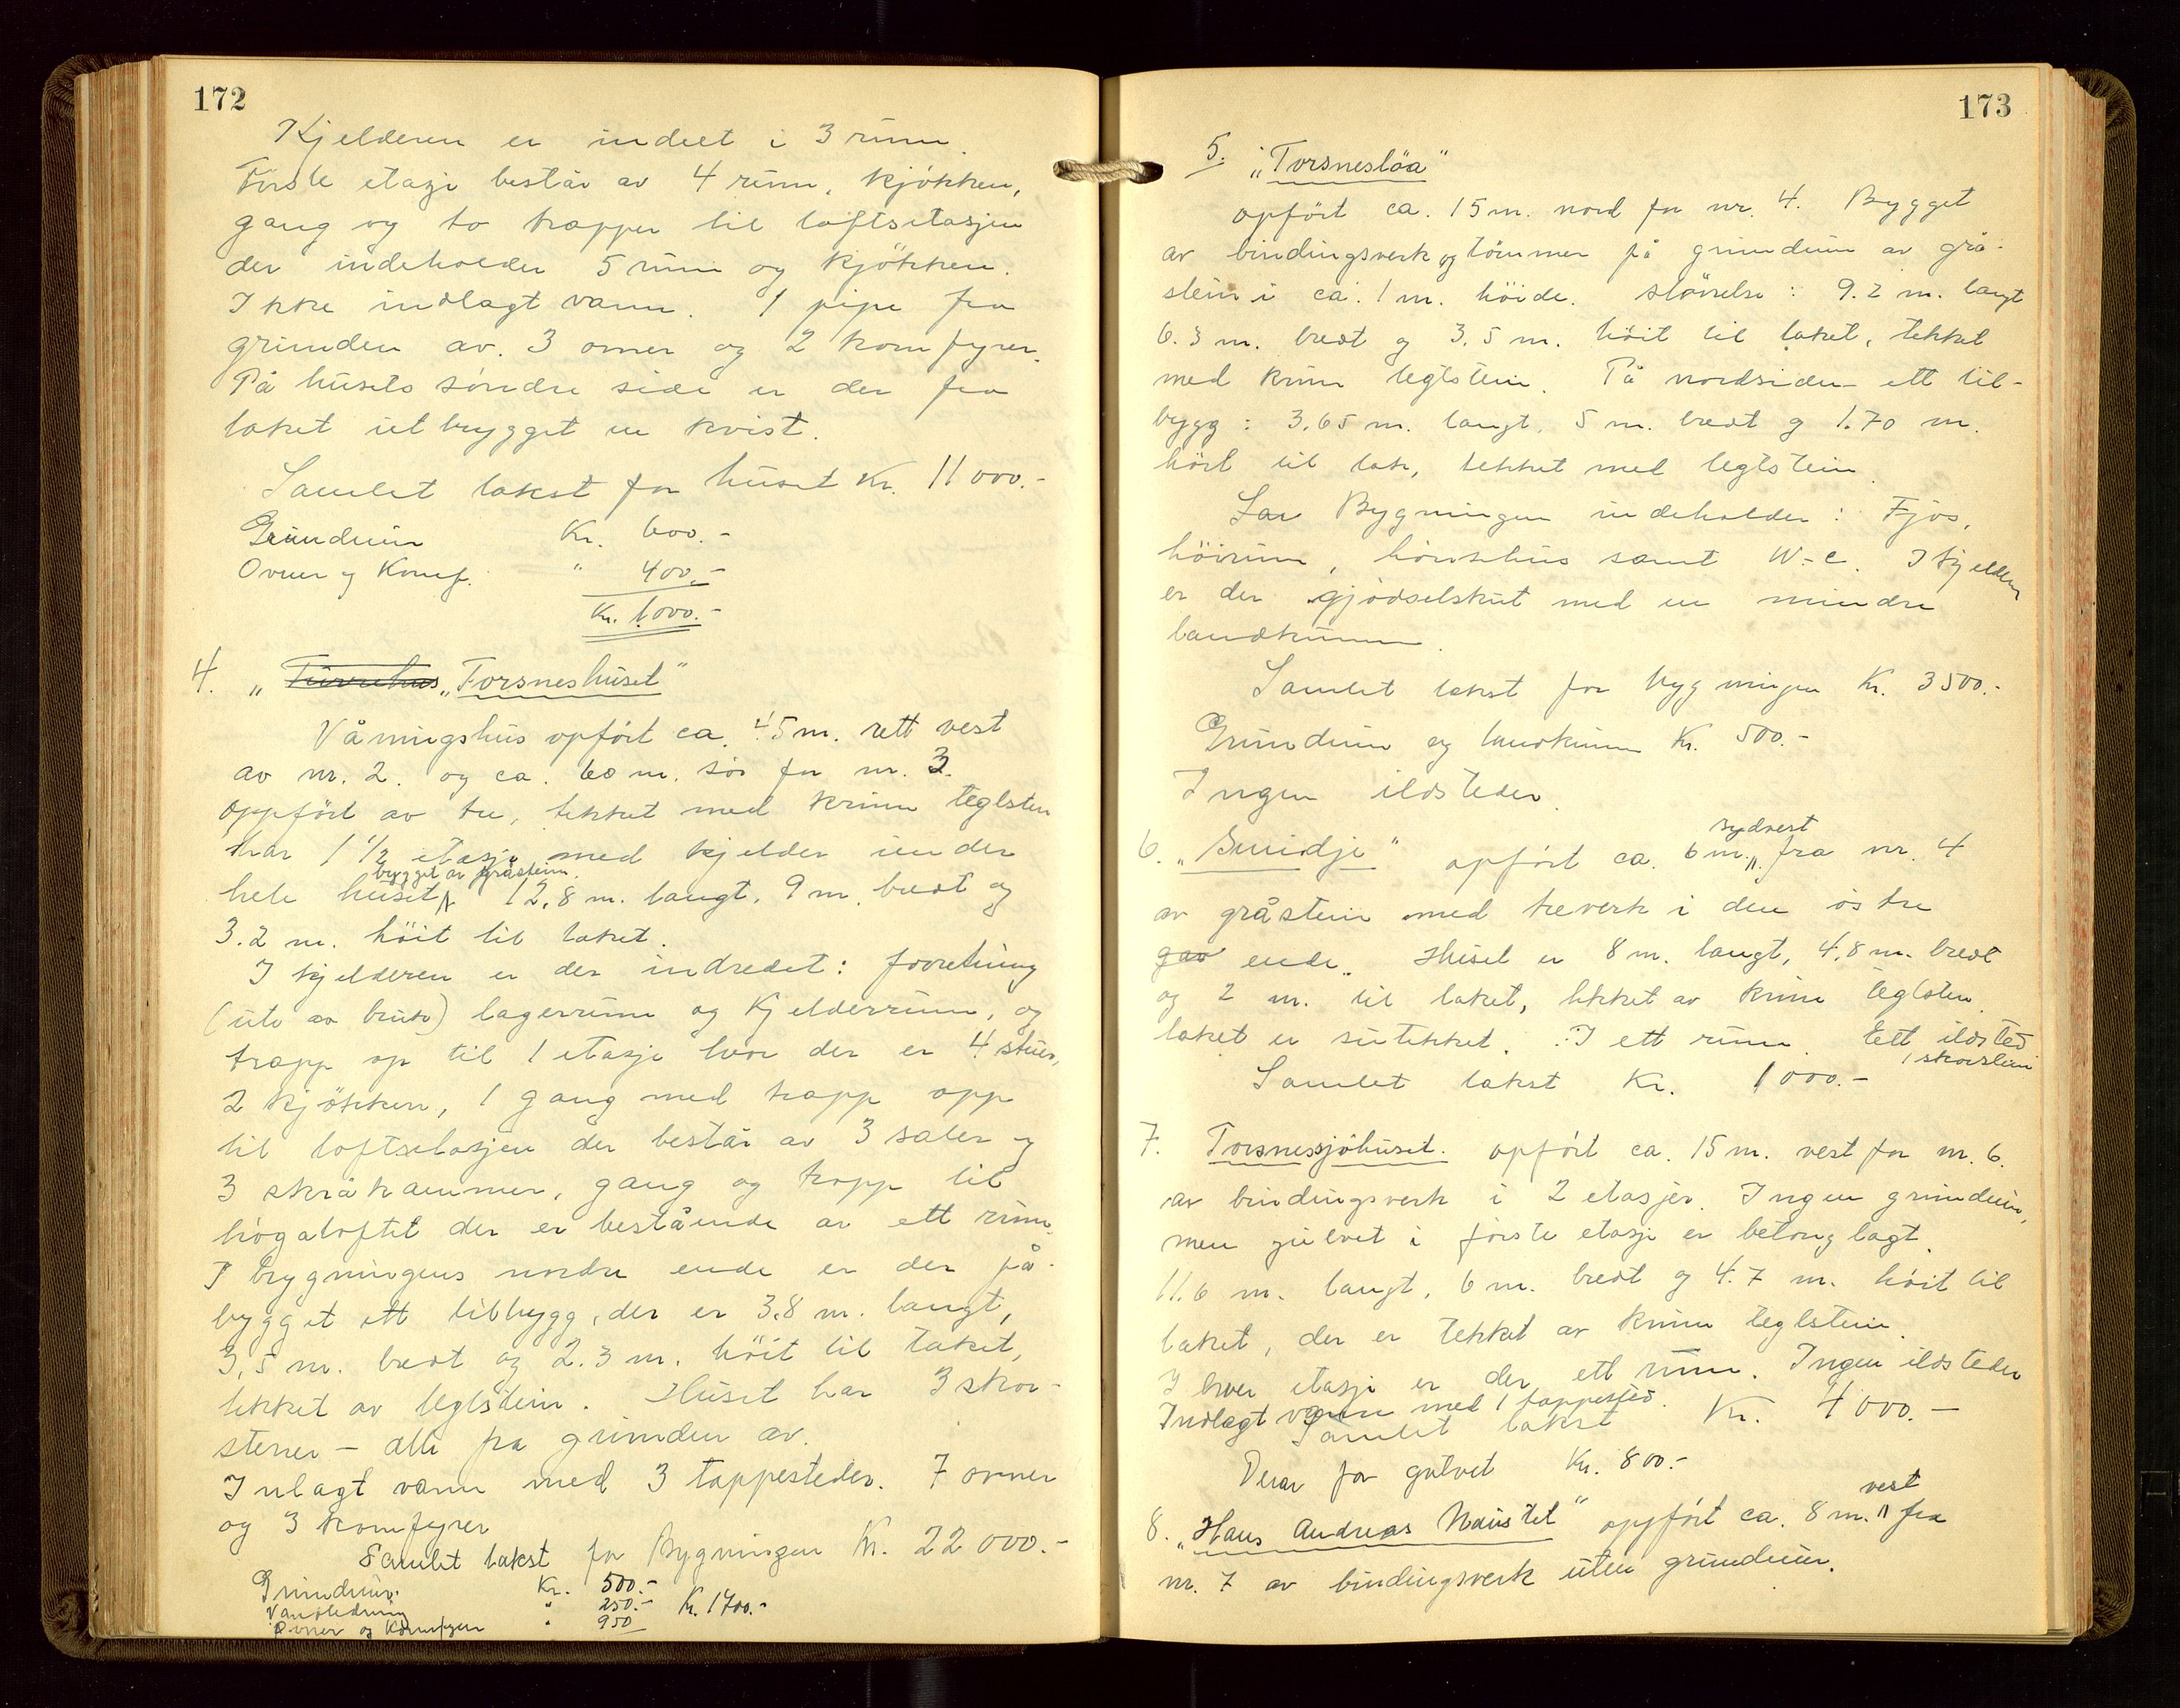 172
Kjelderen er indelt i 3 rum.
Første etasje består av 4 rum, kjøkken,
gang og to trapper til loftsetasjen
der indeholder 5 rum og kjøkken.
Ikke indlagt vann. 1 pipe fra
grunden av. 3 ovner og 2 komfyrer.
På husets søndre side er der fra
taket utbygget en kvist.
Samlet takst for huset Kr. 11000.-
Grundmur Kr. 600.-
Ovner og Komf. " 400.-
Kr. 1000.-
4. „Torsneshuset"
Våningshus opført ca. 45 m. rett vest
av nr. 2. og ca. 60 m. sør for nr. 3.
Oppført av tre, tekket med krum teglsten
har 1 1/2 etasje med kjelder under
bygget av gråstein.
hele huset 12,8 m. langt, 9 m. bredt og
3.2 m. høit til taket.
I kjelderen er der indredet: forretning
(ute av bruk) lagerrum og Kjelderrum, og
trapp op til 1 etasje hvor der er 4 stuer,
2 kjøkken, 1 gang med trapp opp
til loftsetasjen der består av 3 saler og
3 skråkammer, gang og trapp til
høgaloftet der er bestående av ett rum.
I bygningens nordre ende er der på-
bygget ett tilbygg, der er 3,8 m. langt,
3,5 m. bredt og 2.3 m. høit til taket,
tekket av teglstein. Huset har 3 skor-
stener – alle fra grunden av.
Inlagt vann med 3 tappesteder. 7 ovner
og 3 komfyrer
Samlet takst for Bygningen Kr. 22 000.-
Grundmur. Kr. 500.-
Vandledning " 250.- Kr. 1700.-
Ovner og Komfyrer " 950
173
5. „Torsnesløa"
opført ca. 15 m. nord for nr. 4. Bygget
av bindingsverk og tømmer på grundmur av grå-
stein i ca. 1 m. høide. Størrelse: 9.2 m. langt
6.3 m. bredt og 3.5 m. høit til taket, tekket
med krum teglstein. På nordsiden ett til-
bygg: 3.65 m. langt, 5 m. bredt og 1.70 m.
høit til tak, tekket med teglstein.
Bygningen indeholder: Fjøs,
høirum, hønsehus samt W-c. I kjelderen
er der gjødselskut med en mindre
landkumme.
Samlet takst for bygningen Kr. 3500.-
Grundmur og landkumm Kr. 500.-
Ingen ildsteder.
sydvest
6. „Smidje" opført ca. 6 m. fra nr. 4
av gråstein med treverk i den østre
gav ende. Huset er 8 m. langt, 4.8 m. bredt
og 2 m. til taket, tekket av krum teglsten
taket er sutekket. I ett rum. Ett ildsted
1 skorstein
Samlet takst Kr. 1000.-
7. Torsnessjøhuset. opført ca. 15 m. vest for nr. 6.
av bindingsverk i 2 etasjer. Ingen grundmur,
men gulvet i første etasje er betonglagt.
11.6 m. langt, 6 m. bredt og 4.7 m. høit til
taket, der er tekket av krum teglstein.
I hver etasje er der ett rum. Ingen ildsteder
Indlagt vann med 1 tappested.
Samlet takst Kr. 4000.-
Derav for gulvet Kr. 800.-
vest
8. „Hans Andreas Naustet" oppført ca. 8 m. fra
nr. 7 av bindingsverk uten grundmur.